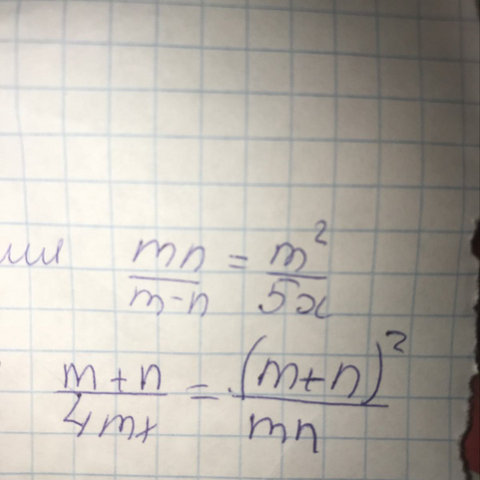 mn/(m-n) = m²/5x
(m+n)/4mx = (m+n)²/mn